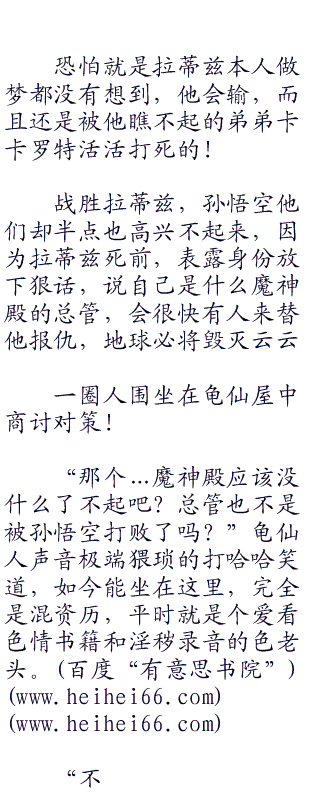 恐怕就是拉蒂兹本人做
梦都没有想到，他会输，而
且还是被他瞧不起的弟弟卡
卡罗特活活打死的！
战胜拉蒂兹，孙悟空他
们却半点也高兴不起来，因
为拉蒂兹死前，表露身份放
下狠话，说自己是什么魔神
殿的总管，会很快有人来替
他报仇，地球必将毁灭云云
一圈人围坐在龟仙屋中
商讨对策！
“那个…魔神殿应该没
什么了不起吧？总管也不是
被孙悟空打败了吗？”龟仙
人声音极端猥琐的打哈哈笑
道，如今能坐在这里，完全
是混资历，平时就是个爱看
色情书籍和淫秽录音的色老
头。(百度“有意思书院”)
(www.heihei66.com)
(www.heihei66.com)
“不